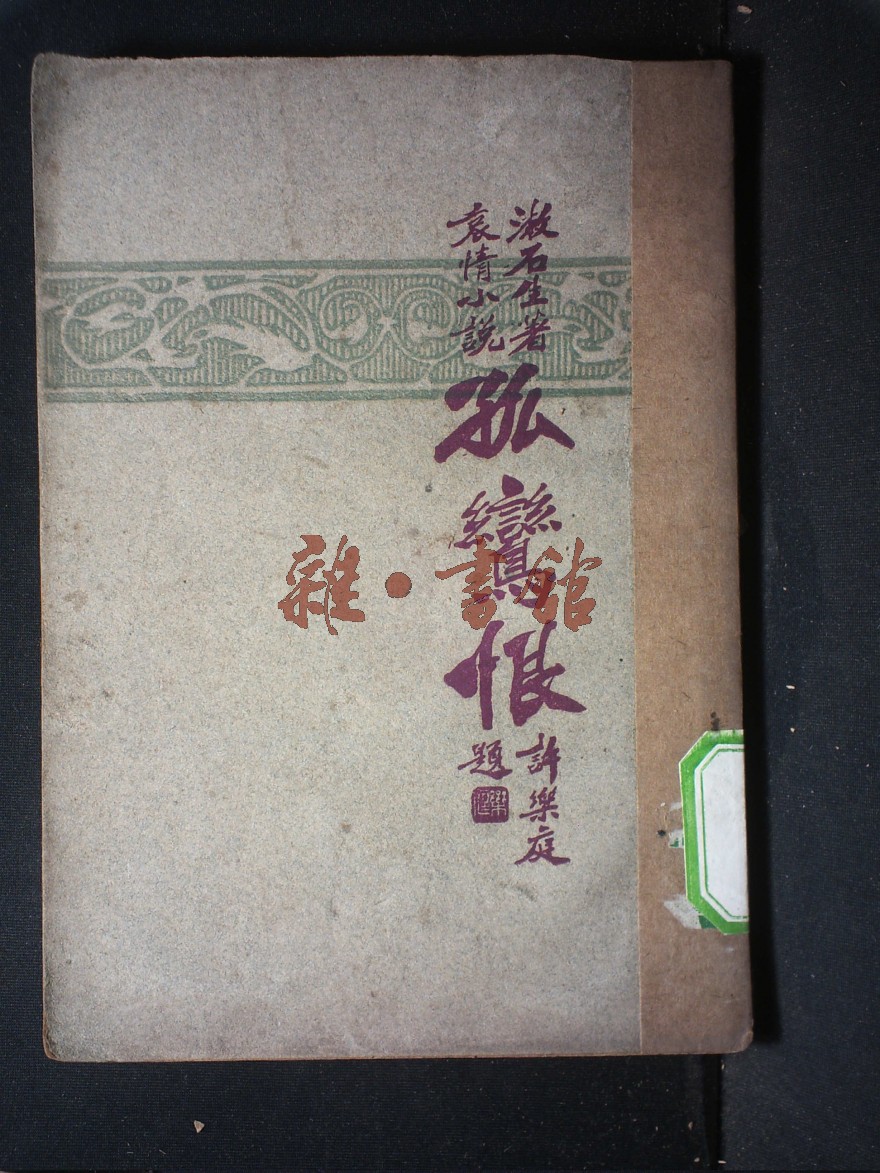 漱石生著
哀情小說
孤鸞恨
許樂庭
題
雜·書館